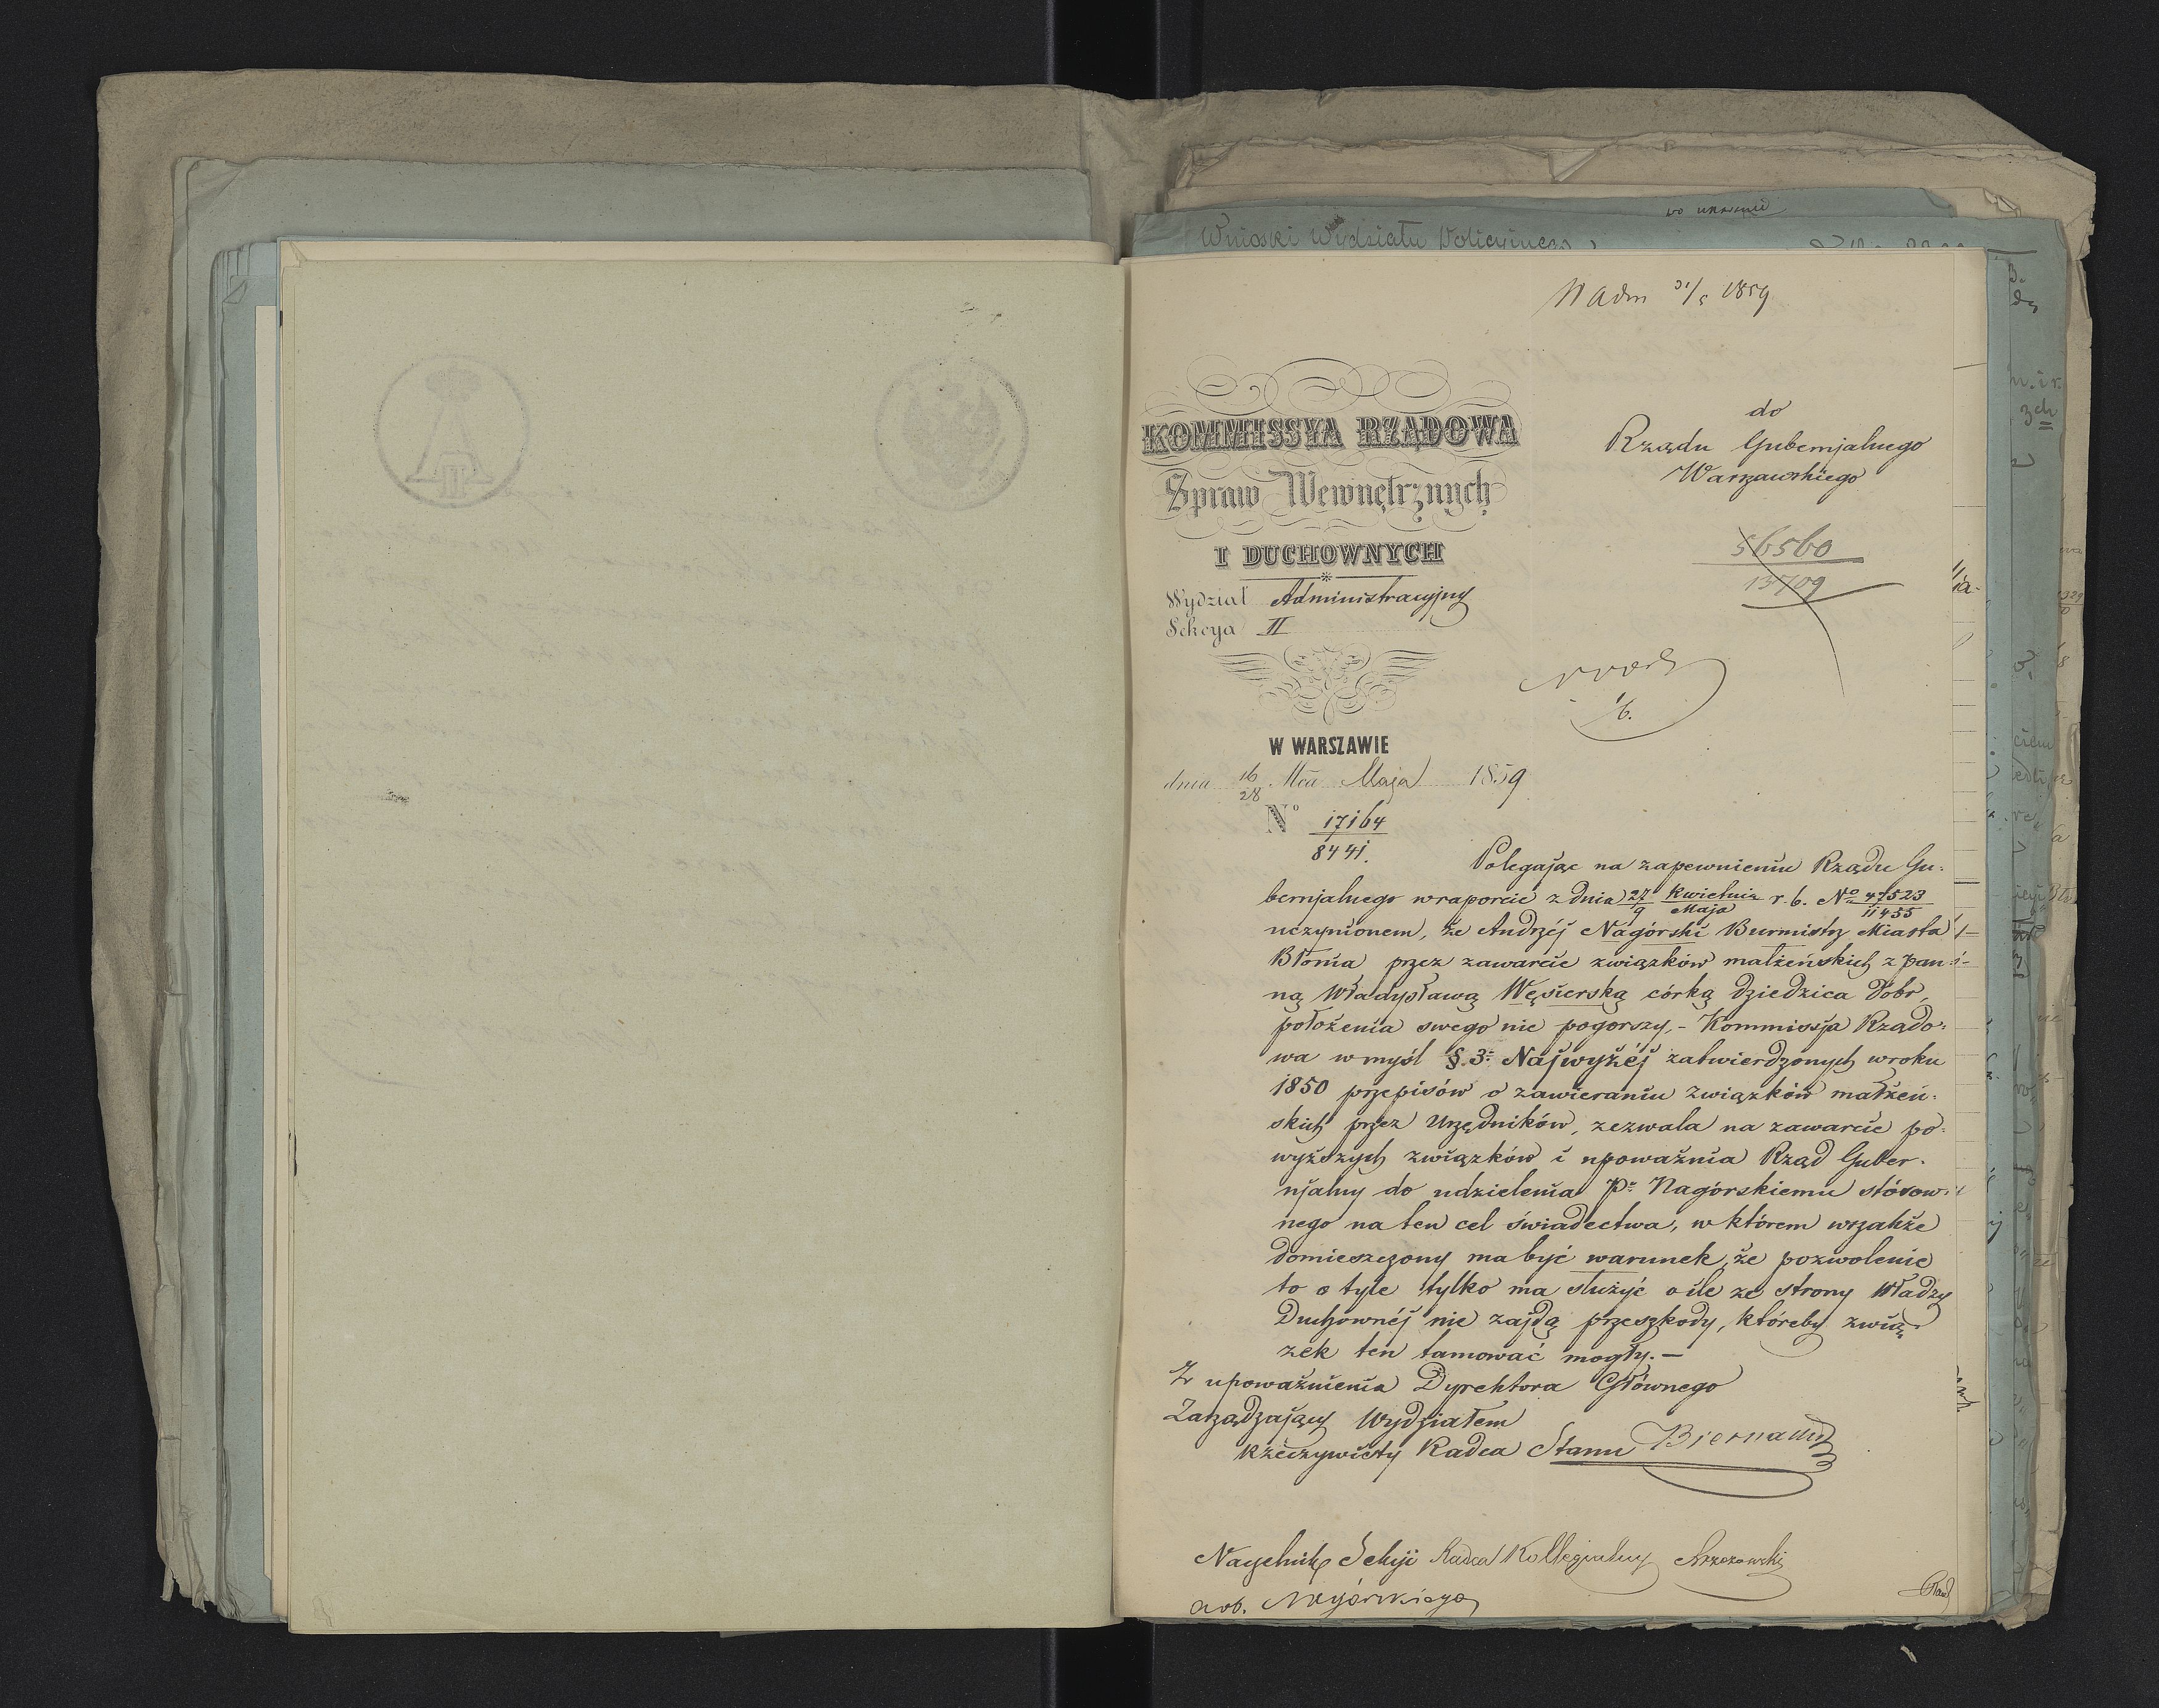 Wnioski Wydziału Policyjnego
W Adm 31/5 1859
KOMMISSYA RZĄDOWA
Spraw Wewnętrznych
I DUCHOWNYCH
Wydział Administracyjny
Sekcya II
do
Rządu Gubernjalnego
Warszawskiego
56560
13709
W WARSZAWIE
dnia 16/28 Mca Maja 1859
No 17164
8441.
Polegając na zapewnieniu Rządu Gu-
bernjalnego w raporcie z dnia 27/9 Kwietnia/Maja r. b. No 47523/11455
uczynionem, że Andrzéj Nagórski Burmistrz Miasta
Błonia przez zawarcie związków małżeńskich z Pan-
ną Władysławą Węsierską córką dziedzica Dobr,
położenia swego nie pogorszy, - Kommissja Rządo-
wa w myśl §. 3. Najwyżéj zatwierdzonych w roku
1850 przepisów o zawieraniu związków małżeń-
skich przez Urzędników, zezwala na zawarcie po-
wyższych związków i upoważnia Rząd Guber-
njalny do udzielenia P. Nagórskiemu stósow-
nego na ten cel świadectwa, w którem wszakże
domieszczony ma być warunek, że pozwolenie
to o tyle tylko ma służyć o ile ze strony Władzy
Duchownéj nie zajdą przeszkody, któreby zwią-
zek ten tamować mogły. —
Z upoważnienia Dyrektora Głównego
Zarządzający Wydziałem
Rzeczywisty Radca Stanu Biernacki
Naczelnik Sekcji Radca Kollegialny
Nagórskiego